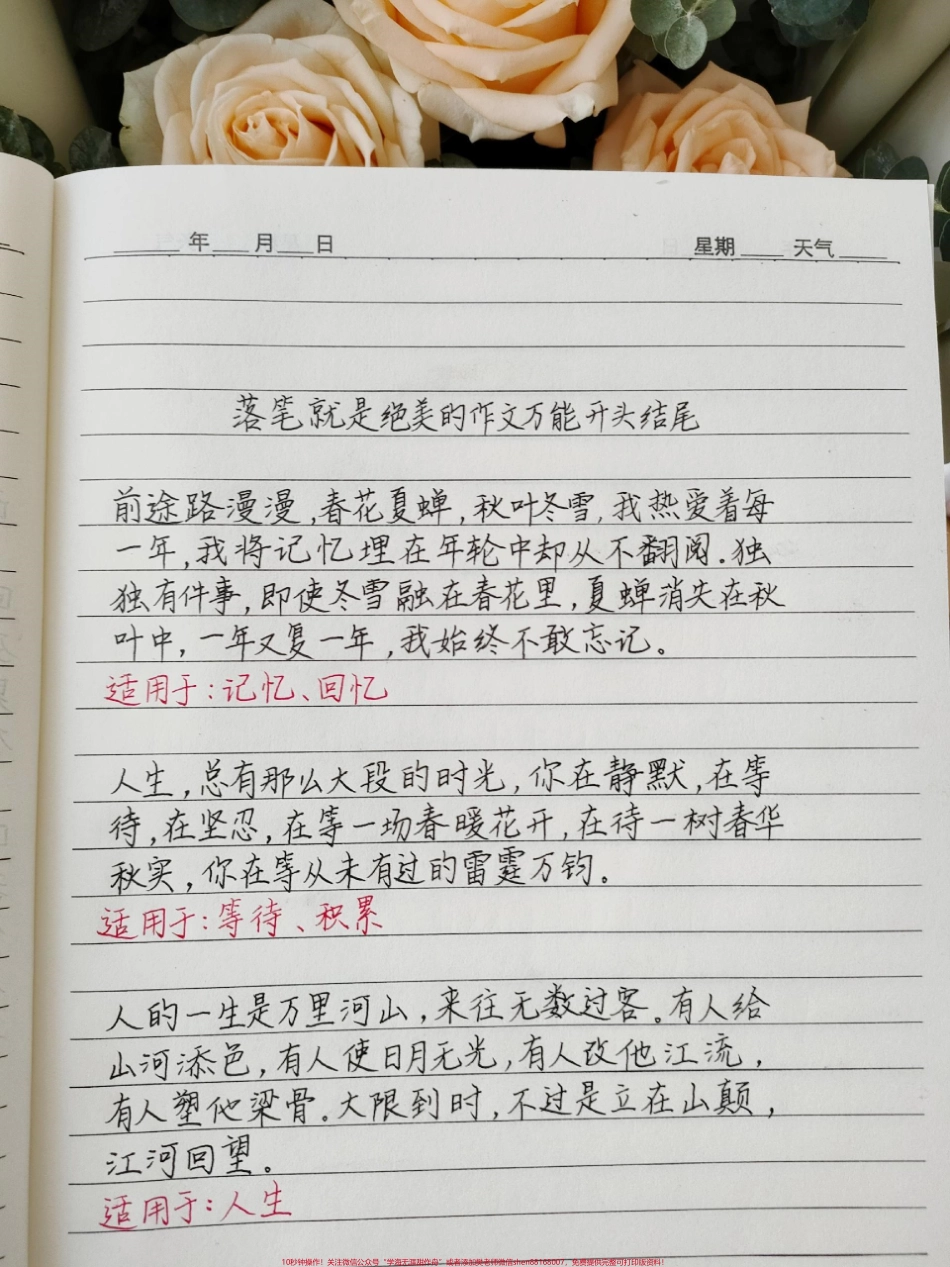 ____年___月___日 星期____天气____
落笔就是绝美的作文万能开头结尾
前途路漫漫,春花夏蝉,秋叶冬雪,我热爱着每
一年,我将记忆埋在年轮中却从不翻阅.独
独有件事,即使冬雪融在春花里,夏蝉消失在秋
叶中,一年又复一年,我始终不敢忘记。
适用于:记忆、回忆
人生,总有那么大段的时光,你在静默,在等
待,在坚忍,在等一场春暖花开,在待一树春华
秋实,你在等从未有过的雷霆万钧。
适用于:等待、积累
人的一生是万里河山,来往无数过客。有人给
山河添色,有人使日月无光,有人改他江流,
有人塑他梁骨.大限到时,不过是立在山颠,
江河回望。
适用于:人生
10秒钟操作!关注微信公众号"学海无涯甜作舟"或者添加樊老师微信shen88168007,免费提供完整可打印版资料!